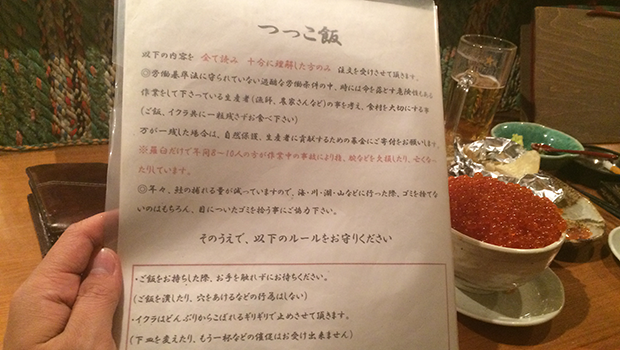 つっこ飯
以下の内容を 全て読み 十分に理解した方のみ 注文を受けさせて頂きます。
◎労働基準法に守られていない過酷な労働条件の中、時には命を落とす危険性もある
作業をして下さっている生産者(漁師、農家さんなど)の事を考え、食材を大切にする事
(ご飯、イクラ共に一粒残さずお食べ下さい)
万が一残した場合は、自然保護、生産者に貢献するための基金にご寄付をお願いします。
※羅臼だけで年間8~10人の方が作業中の事故により指、腕などを失損したり、亡くなっ
たりしています。
◎年々、鮭の捕れる量が減っていますので、海・川・湖・山などに行った際、ゴミを捨てな
いのはもちろん、目についたゴミを拾う事にご協力下さい。
そのうえで、以下のルールをお守りください
・ご飯をお持ちした際、お手を触れずにお待ちください。
(ご飯を潰したり、穴をあけるなどの行為はしない)
・イクラはどんぶりからこぼれるギリギリで止めさせて頂きます。
(下皿を変えたり、もう一杯などの催促はお受け出来ません)